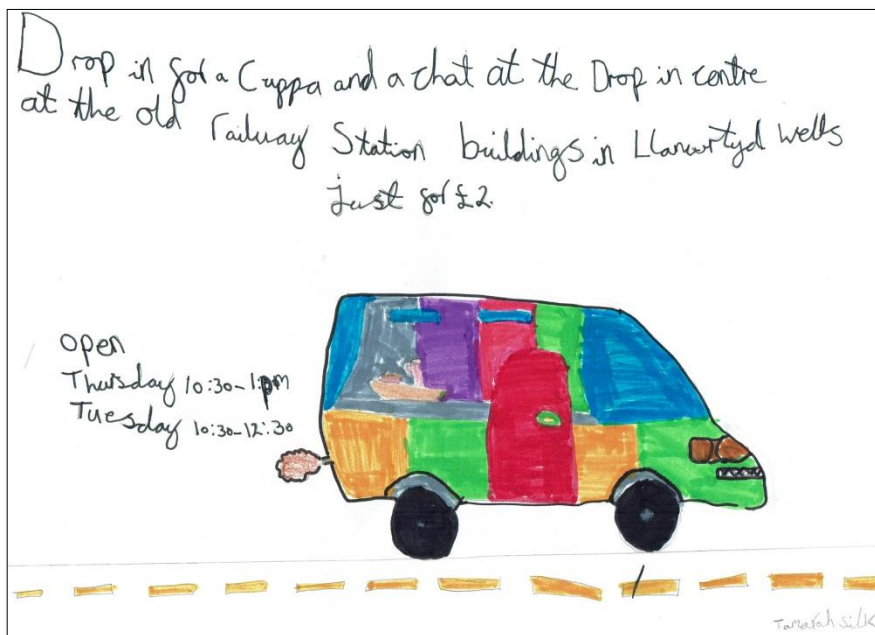 Drop in for a Cuppa and a chat at the Drop in centre
at the old railway Station buildings in Llanwrtyd Wells
just for £2.
open
Thursday 10:30-1:pm
Tuesday 10:30-12:30
Tamarah Silk